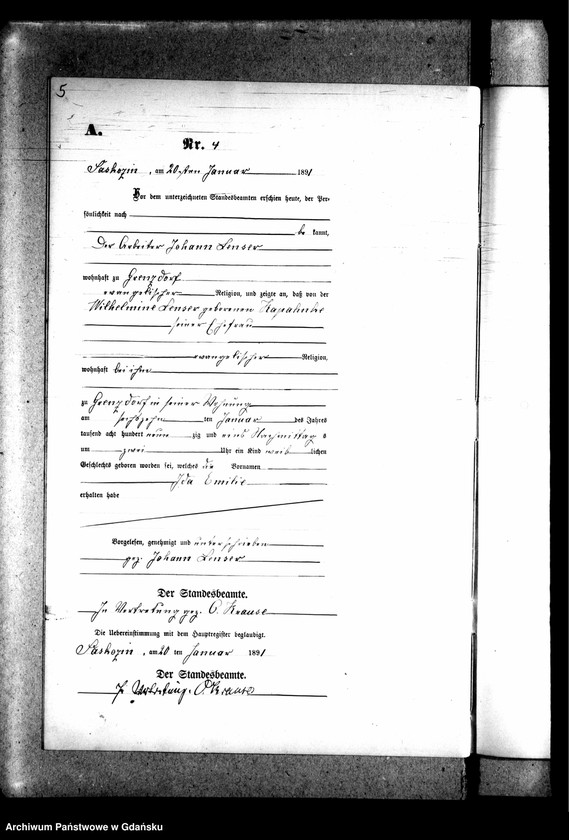 5
A.
Nr. 4
am 20 ten Januar 1891
Vor dem unterzeichneten Standesbeamten erschien heute, der Per-
sönlichkeit nach
be kannt,
Der Arbeiter Johann Lenser
wohnhaft zu Grenzdorf
evangelischer Religion, und zeigte an, daß von der
Wilhelmine Lenser geborenen
seiner Ehefrau
evangelischer Religion,
wohnhaft bei ihm
zu Grenzdorf in seiner Wohnung
am sechszehn ten Januar des Jahres
tausend acht hundert neun zig und eins Nachmittag s
um zwei Uhr ein Kind weib lichen
Geschlechts geboren worden sei, welches die Vornamen
Ida Emilie
erhalten habe
Vorgelesen, genehmigt und unterschrieben
gez. Johann Lenser
Der Standesbeamte.
In Vertretung gez. O. Krause
Die Uebereinstimmung mit dem Hauptregister beglaubigt.
am 20 ten Januar 1891
Der Standesbeamte.
In Vertretung. O. Krause
Archiwum Państwowe w Gdańsku